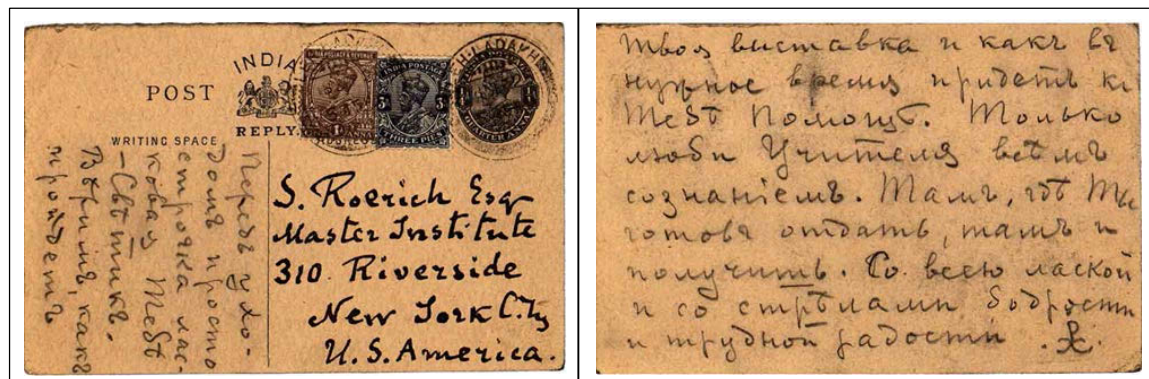 INDIA
POST
REPLY.
WRITING SPACE
INDIA POSTAGE & REVENUE
INDIA POSTAGE
3 3
THREE PIES
QUARTER ANNA
LADAKH
Передъ ухо-
домъ просто
строчка лас-
ковая Тебѣ
– Свѣтикъ.
Вѣримъ, какъ
пройдетъ
S. Roerich Esq
Master Institute
310. Riverside
New York City
U.S. America.
Твоя выставка и какъ въ
нужное время придетъ къ
Тебѣ Помощь. Только
люби Учителя всѣмъ
сознаніемъ. Тамъ, гдѣ Ты
готовъ отдать, тамъ и
получить. Со всею лаской
и со стрѣлами бодрости
и трудной радости.